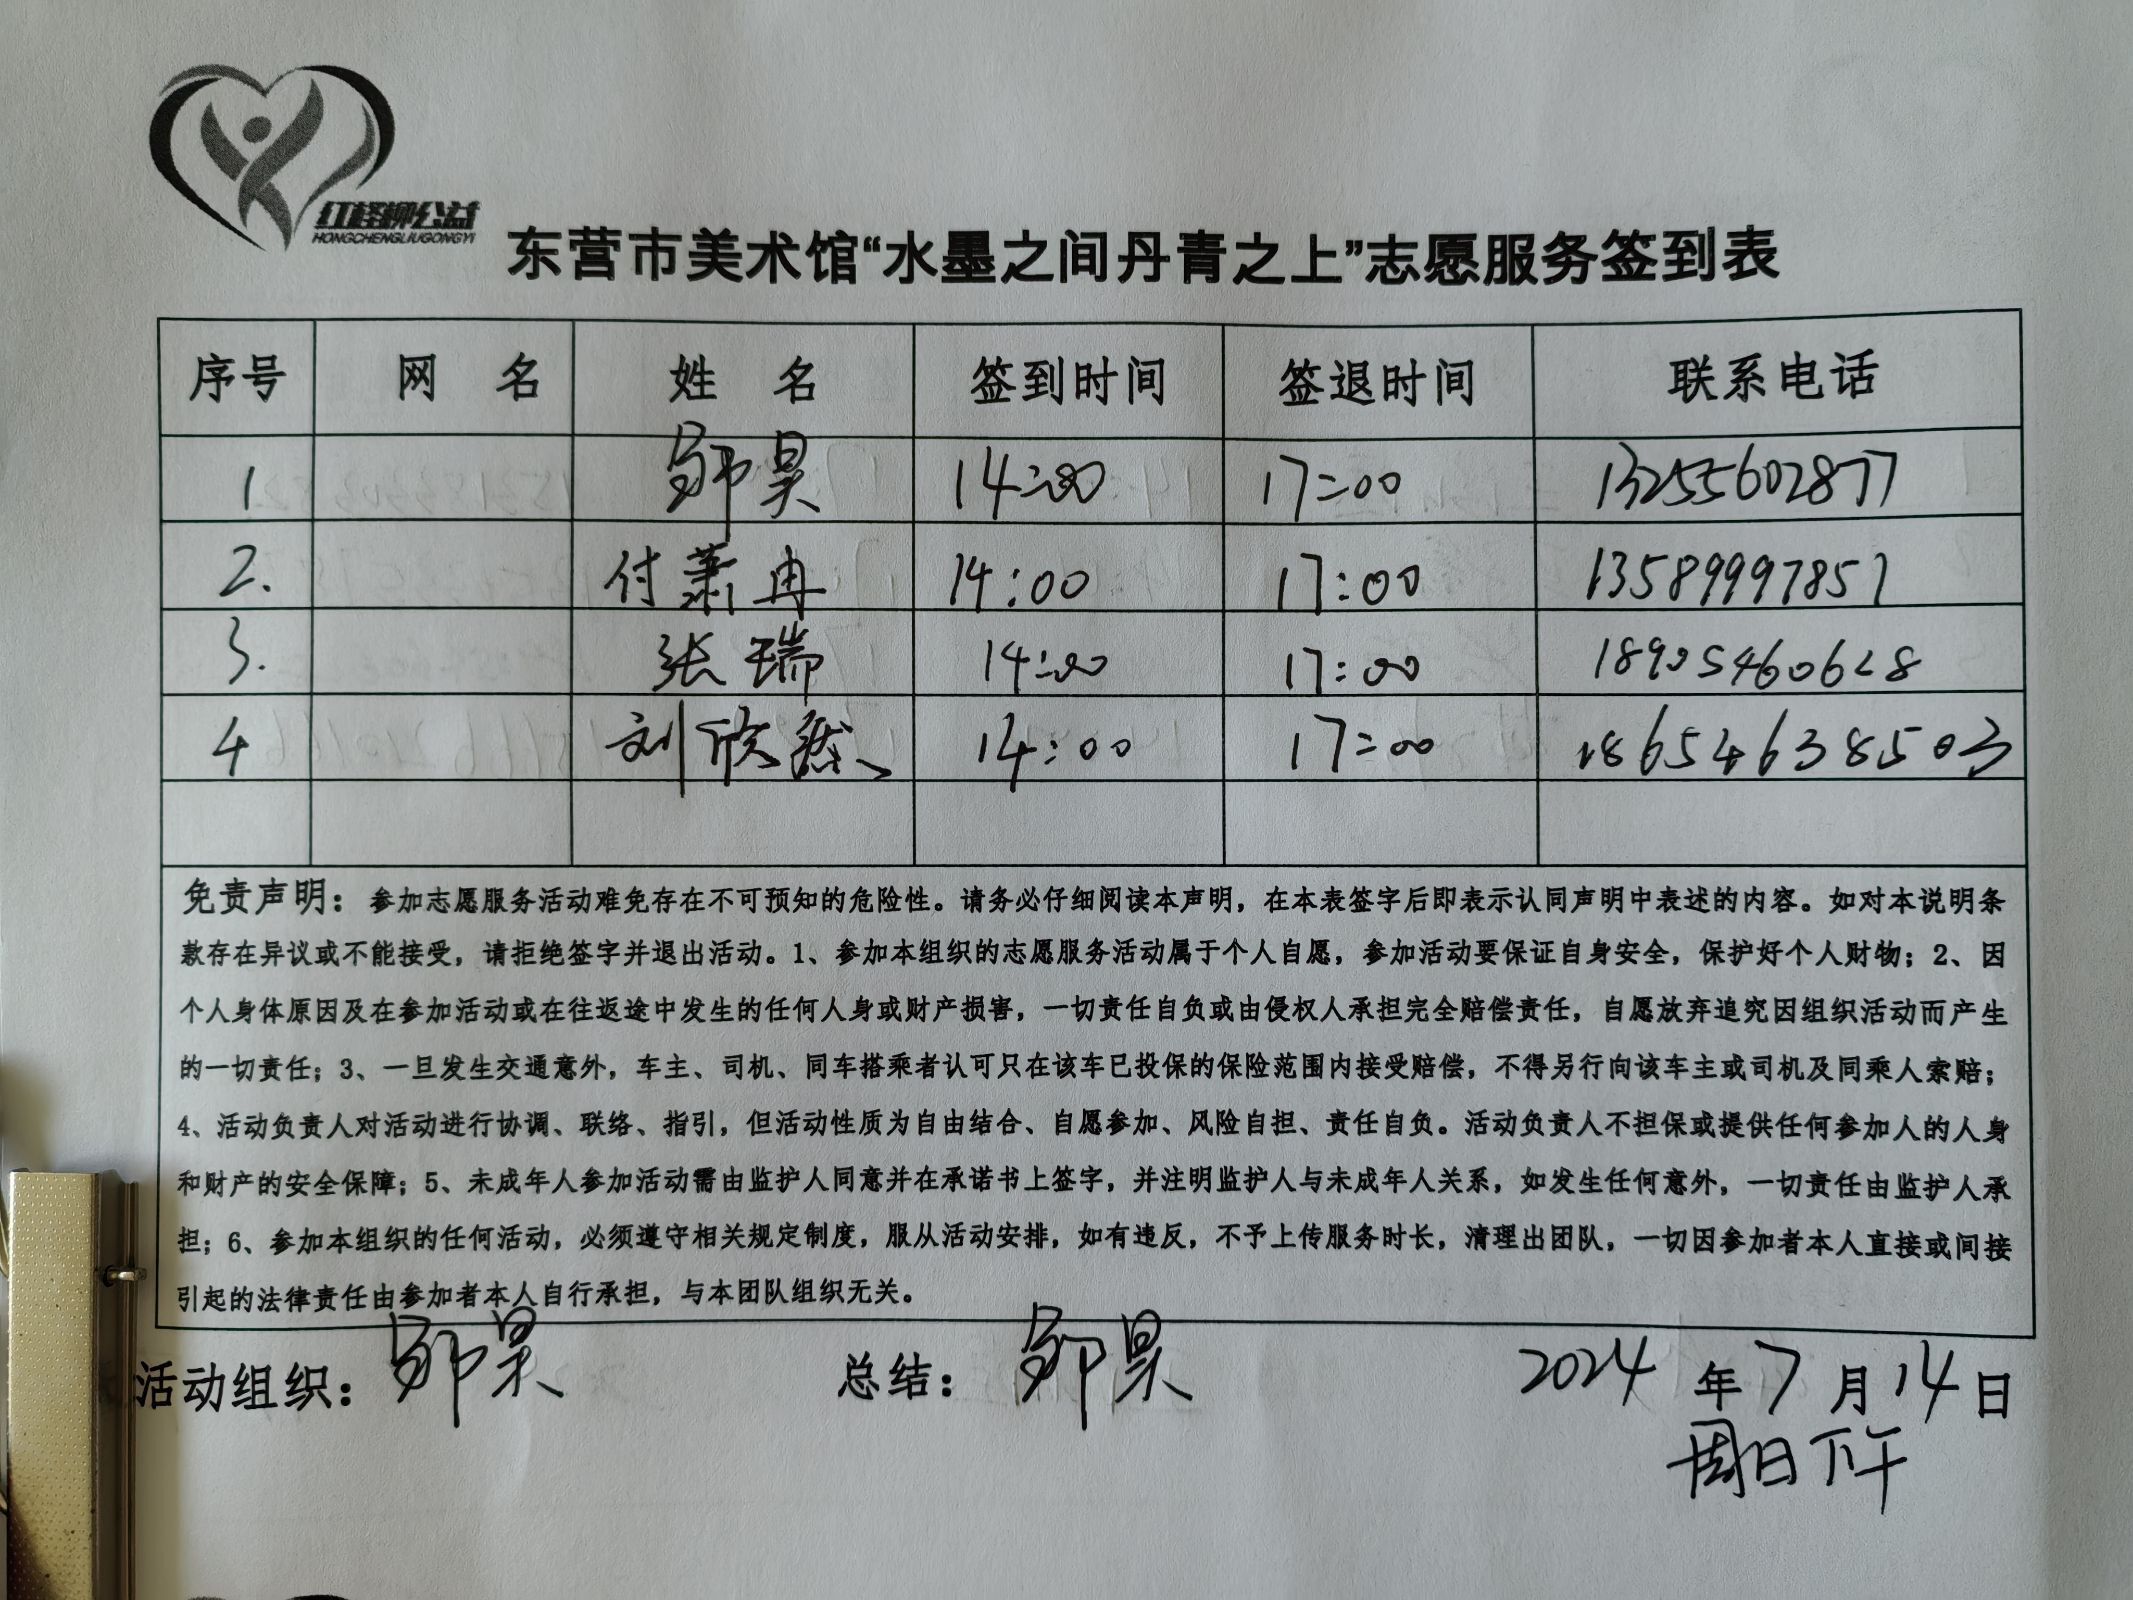 红柽柳公益
HONGCHENGLIUGONGYI
东营市美术馆“水墨之间丹青之上”志愿服务签到表
序号 网 名 姓 名 签到时间 签退时间 联系电话
1 昊 14:00 17:00 13255602877
2. 付萧冉 14:00 17:00 13589997857
3. 张瑞 14:00 17:00 18905460628
4 刘欣然 14:00 17:00 18654638503
免责声明：参加志愿服务活动难免存在不可预知的危险性。请务必仔细阅读本声明，在本表签字后即表示认同声明中表述的内容。如对本说明条
款存在异议或不能接受，请拒绝签字并退出活动。1、参加本组织的志愿服务活动属于个人自愿，参加活动要保证自身安全，保护好个人财物；2、因
个人身体原因及在参加活动或在往返途中发生的任何人身或财产损害，一切责任自负或由侵权人承担完全赔偿责任，自愿放弃追究因组织活动而产生
的一切责任；3、一旦发生交通意外，车主、司机、同车搭乘者认可只在该车已投保的保险范围内接受赔偿，不得另行向该车主或司机及同乘人索赔；
4、活动负责人对活动进行协调、联络、指引，但活动性质为自由结合、自愿参加、风险自担、责任自负。活动负责人不担保或提供任何参加人的人身
和财产的安全保障；5、未成年人参加活动需由监护人同意并在承诺书上签字，并注明监护人与未成年人关系，如发生任何意外，一切责任由监护人承
担；6、参加本组织的任何活动，必须遵守相关规定制度，服从活动安排，如有违反，不予上传服务时长，清理出团队，一切因参加者本人直接或间接
引起的法律责任由参加者本人自行承担，与本团队组织无关。
活动组织： 昊 总结： 昊 2024 年 7 月 14 日
周日下午